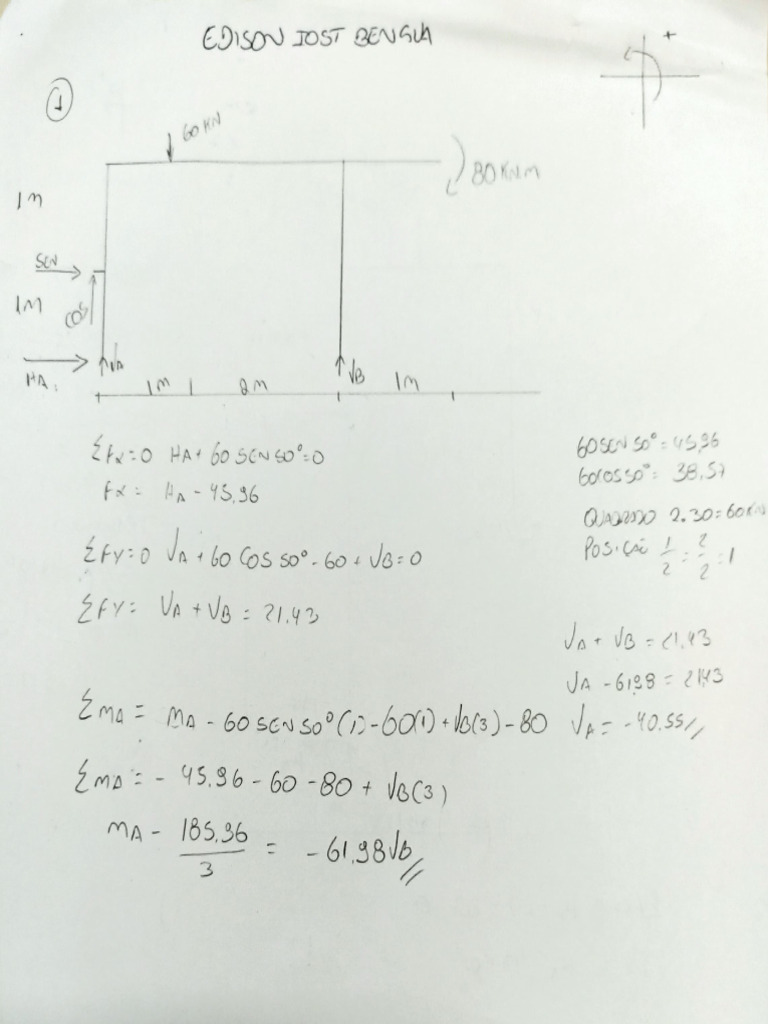 EDISON IOST BENGUA
+
1
60 KN
80 KN.M
1M
SEN
1M
COS
HA
VA
1M
2M
VB
1M
ΣFX=0 HA+60SEN50°=0
FX= HA-45,96
ΣFY=0 VA+60 COS 50°-60+VB=0
ΣFY= VA+VB=21,43
60SEN 50°=45,96
60COS50°= 38,57
QUADRADO 2.30=60KN
POSIÇÃO 1/2 = 2/2 = 1
VA + VB = 21,43
VA -61,98 = 21,43
VA= -40.55//
ΣMA= MA-60SEN50°(1)-60(1)+VB(3)-80
ΣMA= -45,96-60-80+VB(3)
MA - 185,96/3 = -61,98VB//